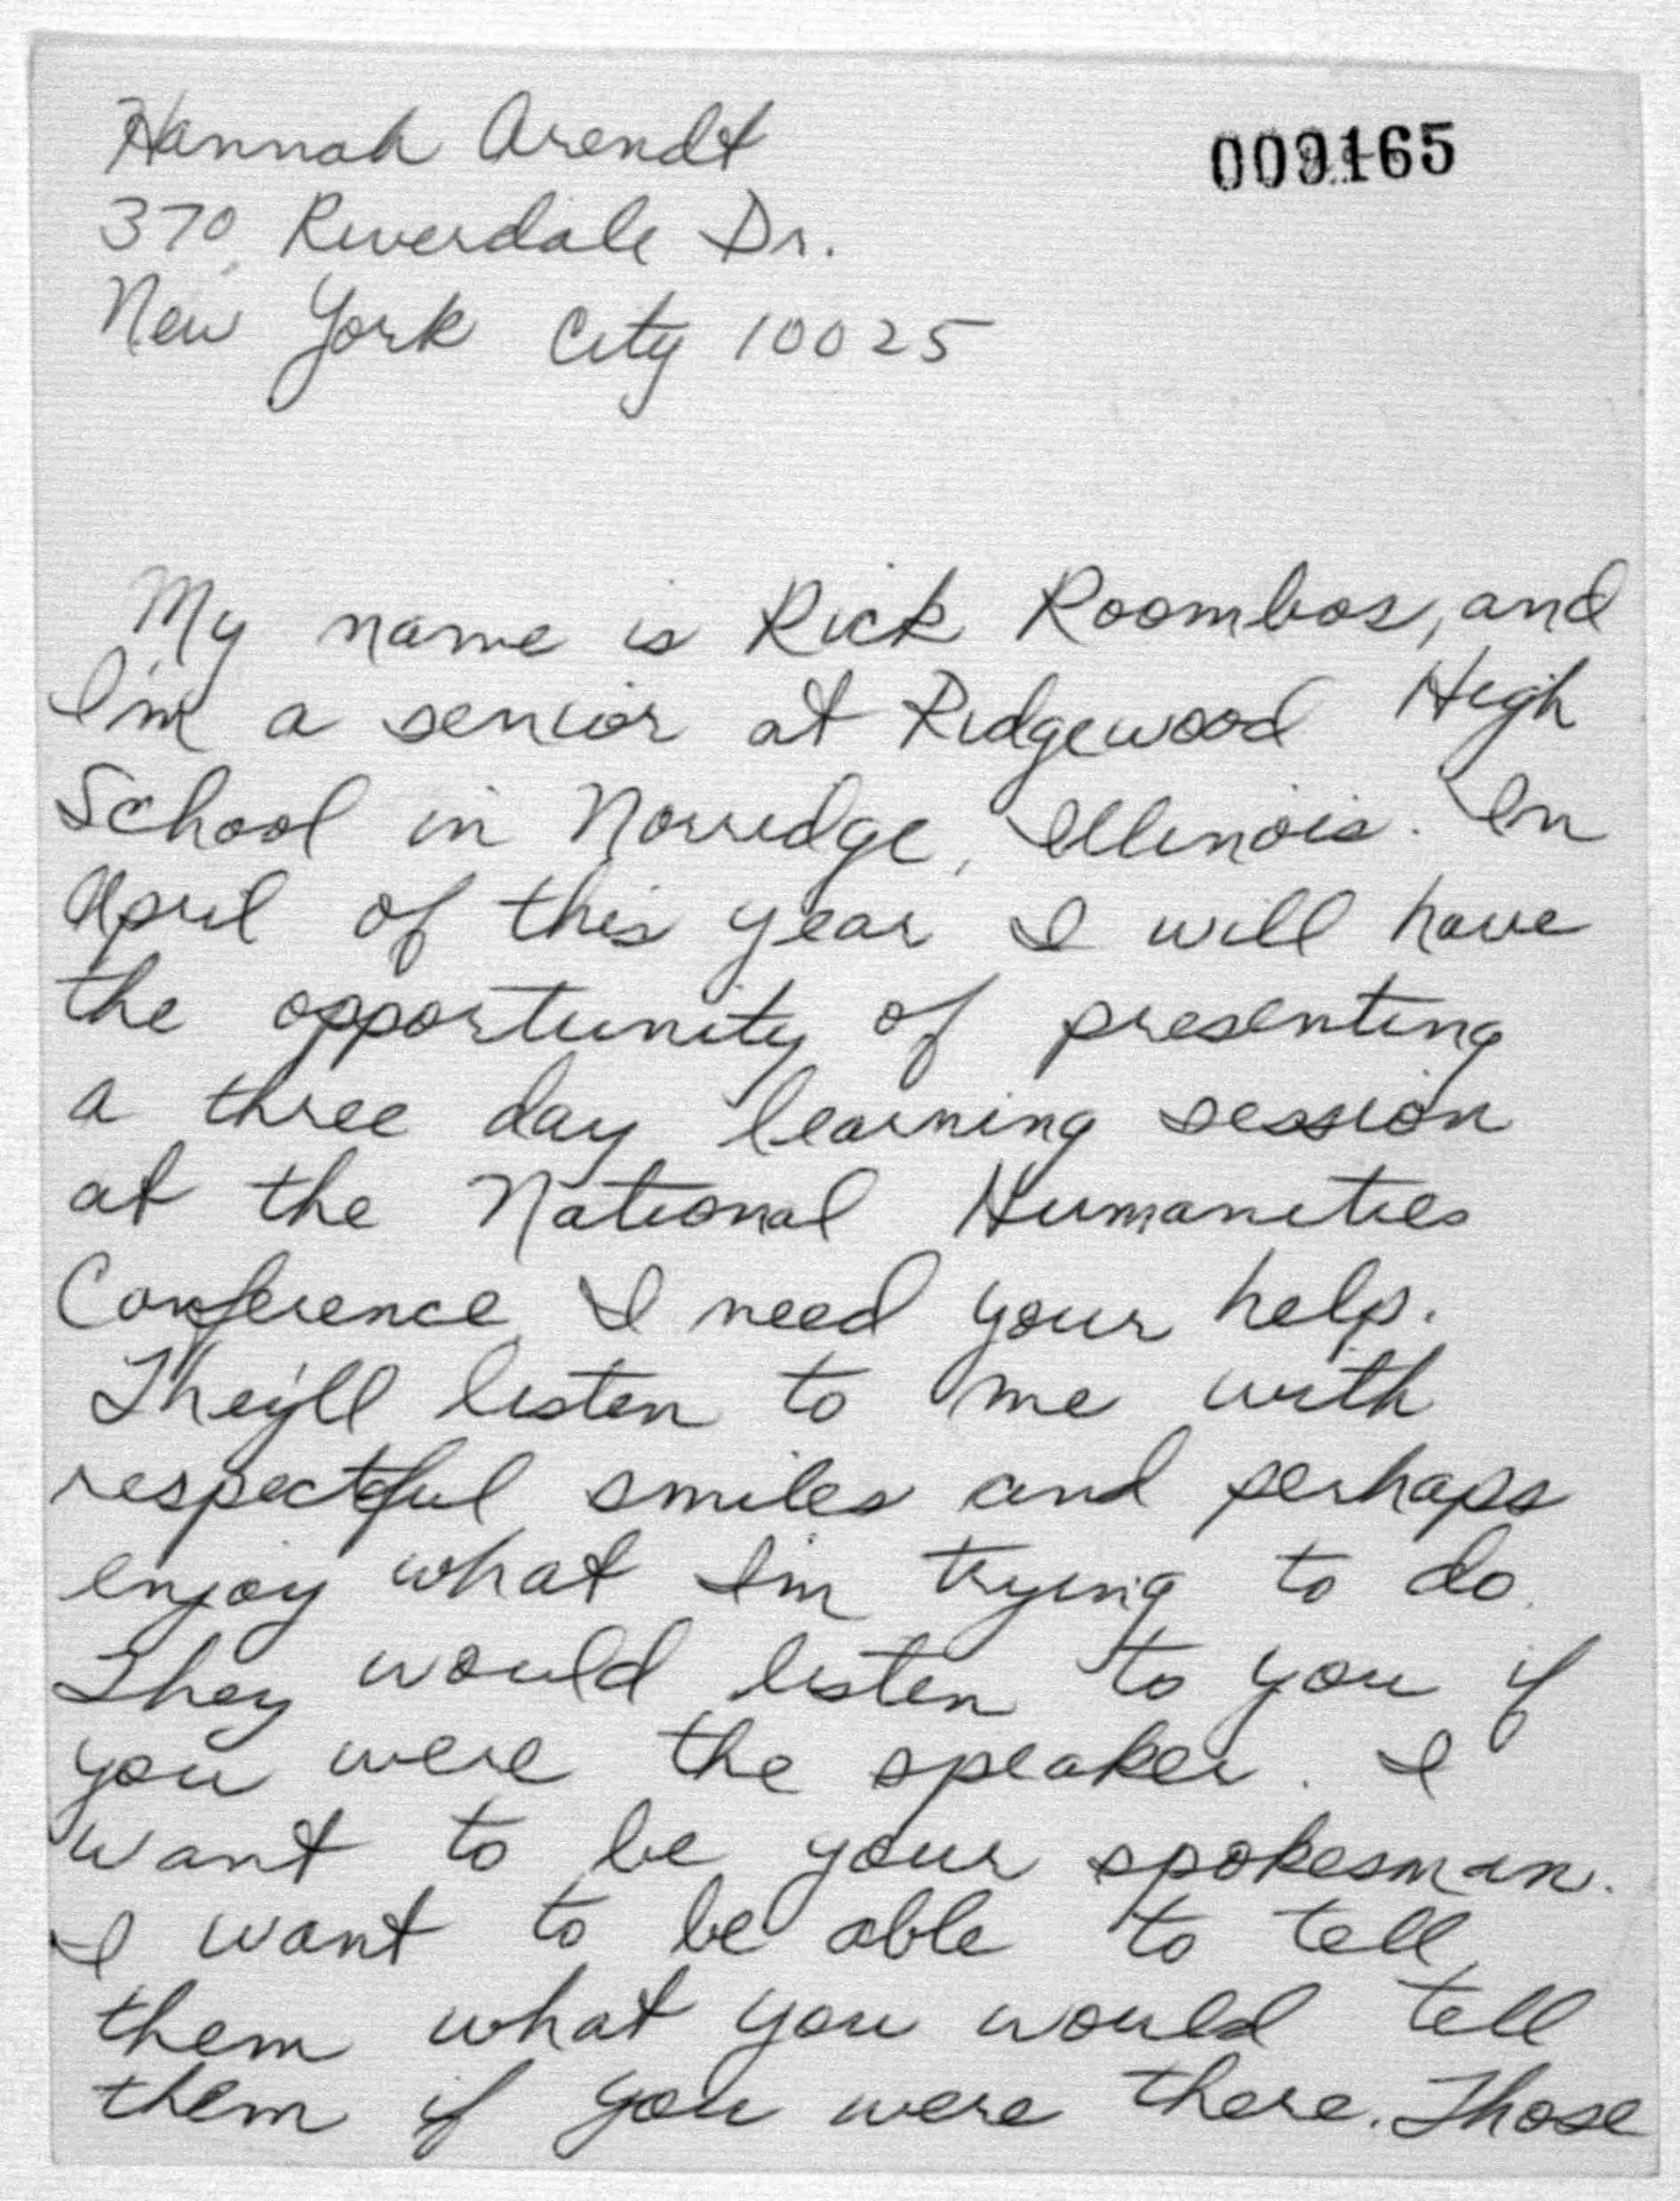 Hannah Arendt
009165
370 Riverdale Dr.
New York City 10025
My name is Rick Roombos, and
I'm a senior at Ridgewood High
School in Norridge, Illinois. In
April of this year I will have
the opportunity of presenting
a three day learning session
at the National Humanities
Conference. I need your help.
They'll listen to me with
respectful smiles and perhaps
enjoy what I'm trying to do.
They would listen to you if
you were the speaker. I
want to be your spokesman.
I want to be able to tell
them what you would tell
them if you were there. Those